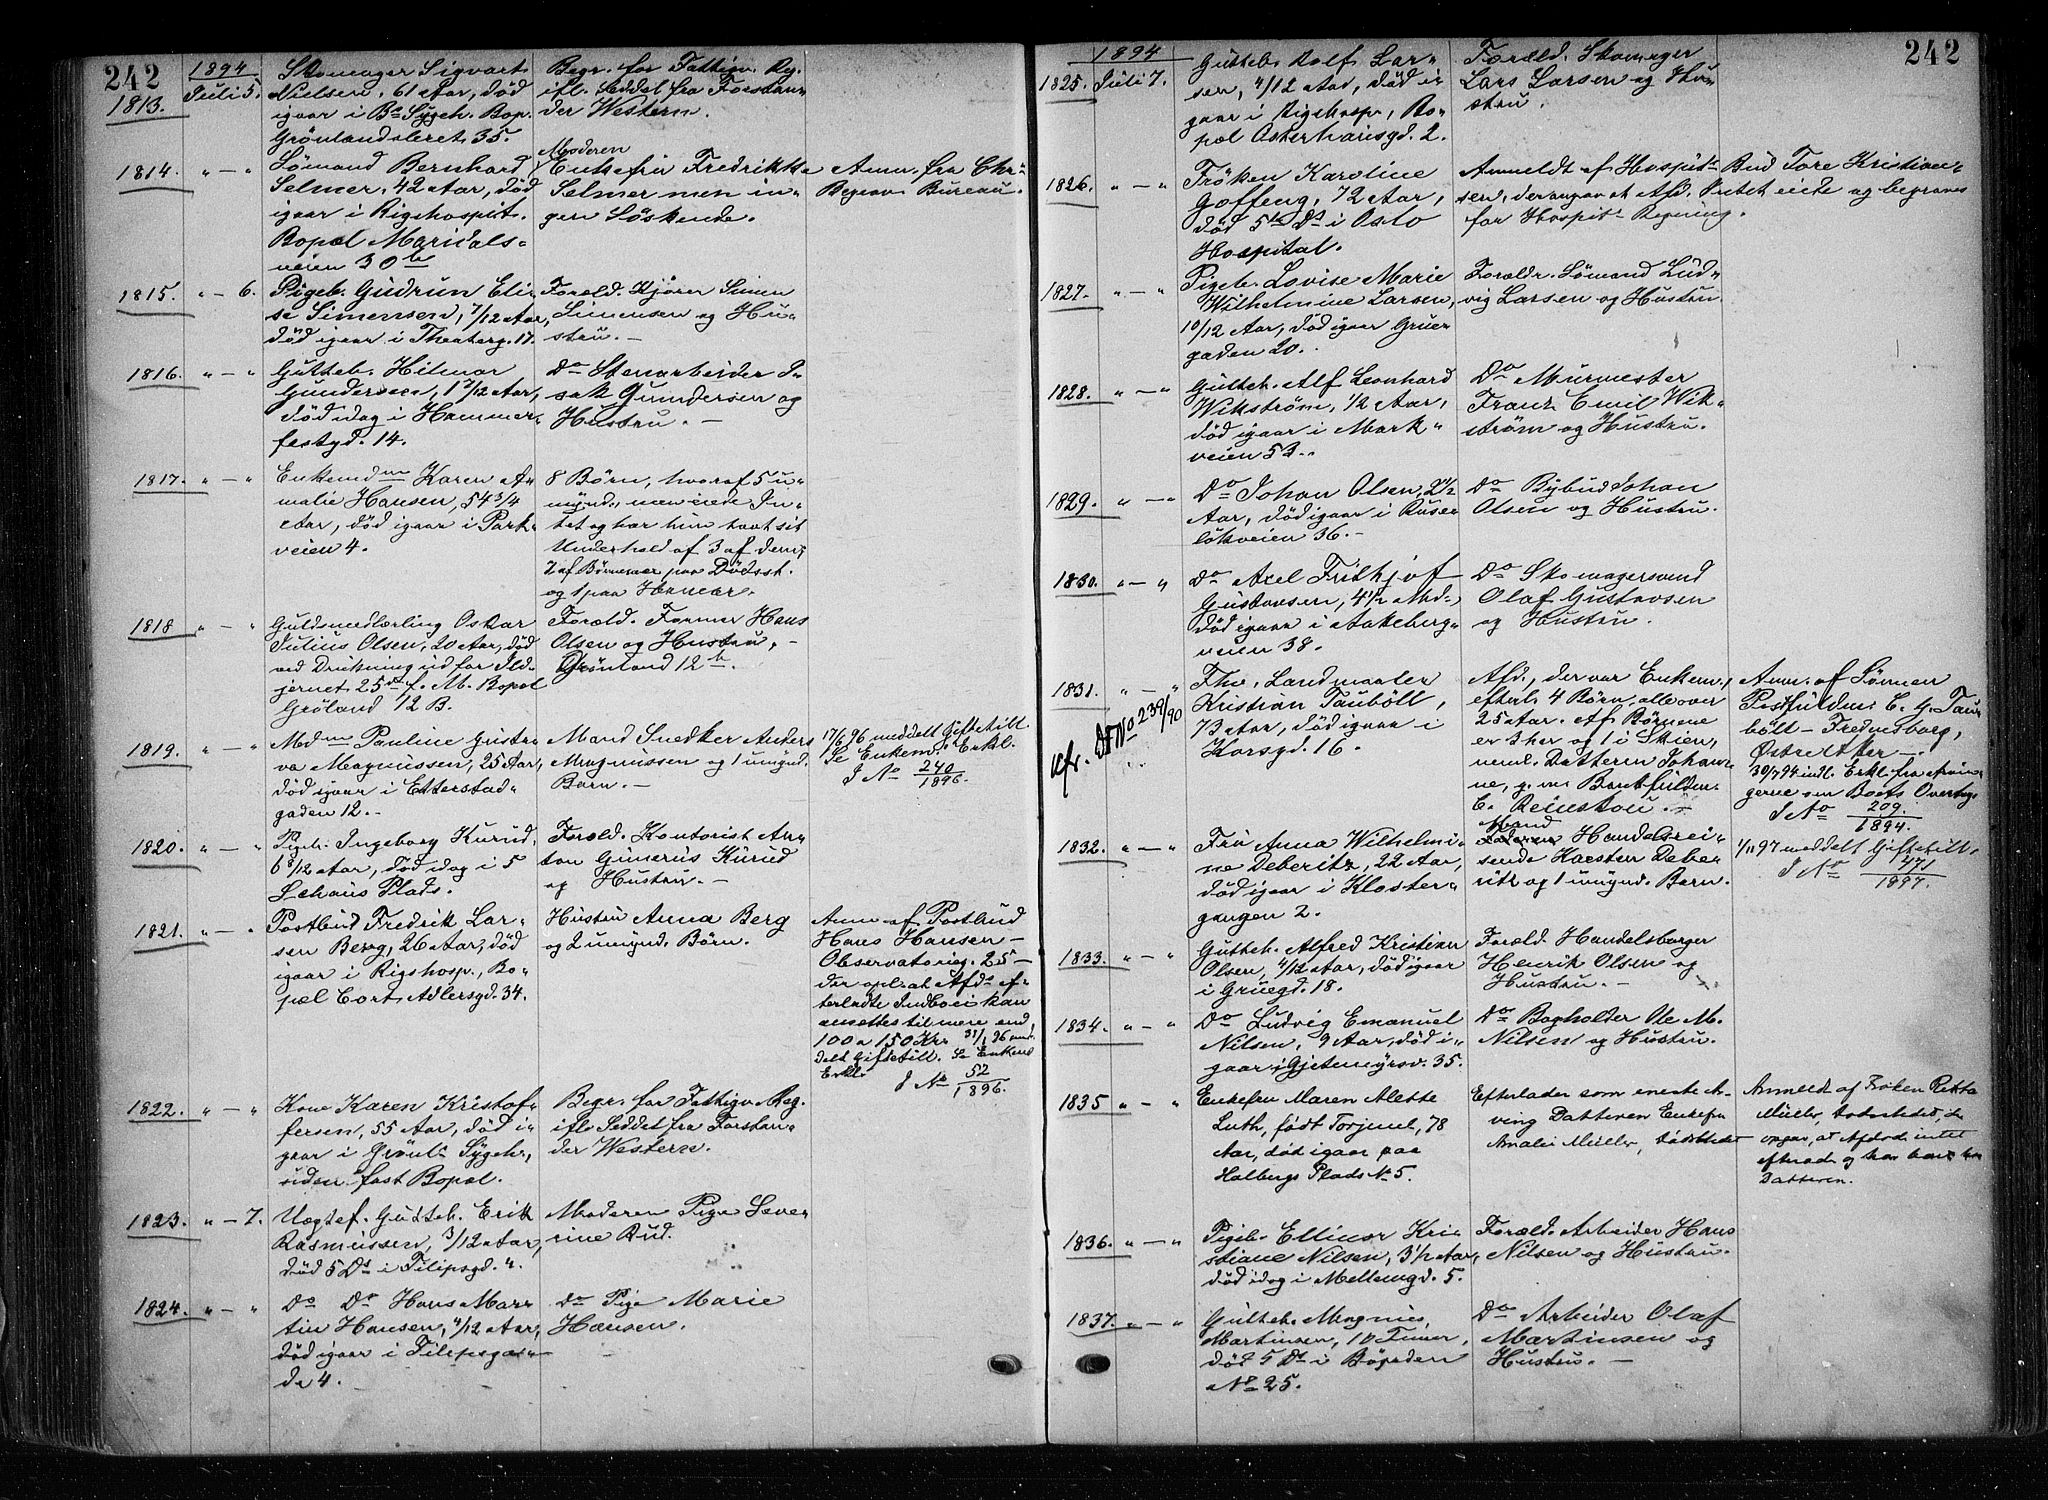 242
1894
1813.
Juli 5.
Skomager Sigvart
Nielsen, 61 Aar, död
igaar i Bs Sygeh. Bop.
Grönlandsleret 35.
Begr. for Fattigv. Reg.
ifl. Seddel fra Forstan-
der Western.
1814. " — "
Sömand Bernhard
Selmer, 42 Aar, död
igaar i Rigshospit.
Bopæl Maridals-
veien 30 b
Moderen
Enkefru Fredrikke
Selmer men in-
gen Söskende.
Anm. fra Chr.
Begrav. Bureau.
1815. " — 6.
Pigeb. Gudrun Eli-
se Simensen, 7/12 Aar,
död igaar i Theaterg. 17.
Foræld. Kjörer Simen
Simensen og Hu-
stru. —
1816. " — "
Gutteb. Hilmar
Gundersen, 1 7/12 Aar,
död idag i Hammer-
festgd. 14.
Do Stenarbeider I-
sak Gundersen og
Hustru. —
1817. " — "
Enkemdm Karen A-
malie Hansen, 54 3/4
Aar, död igaar i Park-
veien 4.
8 Börn, hvoraf 5 u-
mynd., men eiede In-
tet og har hun havt sit
Underhold af 3 af dem;
7 af Börnene paa Dödsst.
og 1 paa Hamar.
1818 " — "
Guldsmedlærling Oskar
Julius Olsen, 20 Aar, död
ved Drukning ud for Ild-
jernet 25de f. M. Bopæl
Gröland 12 B.
Foræld. Former Hans
Olsen og Hustru, —
Grönland 12 b.
1819. " — "
Mdme Pauline Gusta-
va Magnussen, 25 Aar,
död igaar i Etterstad-
gaden 12. —
Mand Snedker Anders
Magnussen og 1 umynd.
Barn. —
17/6 96 meddelt Giftetill.
Se Enkem. Erkl.
J No 240/1896.
1820. " — "
Pigeb. Ingeborg Kurud,
6 8/12 Aar, död idag i 5
Schous Plads.
Foræld. Kontorist An-
ton Gunerius Kurud
og Hustru. —
1821. " — "
Postbud Fredrik Lar-
sen Berg, 26 Aar, död
igaar i Rigshosp., Bo-
pæl Cort Adlersgd. 34.
Hustru Anna Berg
og 2 umynd. Börn.
Anm. af Postbud
Hans Hansen —
Observatorieg. 25 —
der opl. at Afds ef-
terladte Indboei kan
ansættes til mere end
100 a 150 Kr. 31/1 96 med-
delt Giftetill. Se Enkens
Erkl. J No 52/1896.
1822. " — "
Kone Karen Kristof-
fersen, 55 Aar, död i-
gaar i Grönl. Sygeh.,
uden fast Bopæl.
Begr. for Fattigv. Reg.
ifl. Seddel fra Forstan-
der Western.
1823. " — 7.
Uægtef. Gutteb. Erik
Rasmussen, 3/12 Aar,
död 5 Ds i Filipsgd. 4.
Moderen Pige Seve-
rine Rud.
1824. " — "
Do Do Hans Mar-
tin Hansen, 4/12 Aar,
död igaar i Filipsga-
de 4.
Do Pige Marie
Hansen.
242
1894
1825. Juli 7.
Gutteb. Rolf Lar-
sen, 4/12 Aar, död i
gaar i Rigshosp., Bo-
pæl Osterhausgd. 2.
Foræld. Skomager
Lars Larsen og Hu-
stru.
1826. " — "
Fröken Karoline
Goffeng, 72 Aar,
död 5te Ds i Oslo
Hospital.
Anmeldt af Hospits Bud Tore Kristian-
sen, der angav at Afd. Intet eiede og begraves
for Hospits Regning.
1827. " — "
Pigeb. Lovise Marie
Wilhelmine Larsen,
10/12 Aar, död igaar Gruer
gaden 20.
Forældr. Sömand Lud-
vig Larsen og Hustru
1828. " — "
Gutteb. Alf Leonhard
Wikström, 1/2 Aar,
död igaar i Mark-
veien 53.
Do Murmester
Frantz Emil Wik-
ström og Hustru.
1829. " — "
Do Johan Olsen, 2 1/2
Aar, död igaar i Ruse-
lökveien 36. —
Do Bybud Johan
Olsen og Hustru.
1830. " — "
Do Axel Frithjof
Gustavsen, 4 1/2 Md.,
död igaar i Aakeberg-
veien 38.
Do Skomagersvend
Olaf Gustavsen
og Hustru.
1831. " — "
Kfr. DF No 239/90
Fhv. Landmaaler
Kristian Tauböll,
73 Aar, död igaar i
Korsgd. 16.
Afd., der var Enkem.,
efterl. 4 Börn, alle over
25 Aar. Af Börnene
er 3 her og 1 i Skien,
neml. Datteren Johan-
ne, g. m. Bankfuldm.
C. Reinskou. —
Anm. af Sönnen
Postfuldm. C. G. Tau-
böll — Frednesborg,
Östre Aker —.
30/7 94 indl. Erkl. fra Arvin-
gerne om Boets Overtag.
J No 209/1894.
1832. " — "
Fru Anna Wilhelmi-
ne Deberitz, 22 Aar,
död igaar i Kloster-
gangen 2.
Mand
Handelsrei-
sende Karsten Debe-
ritz og 1 umynd. Barn.
1/11 97 meddelt Giftetill.
J No 471/1897.
1833. " — "
Gutteb. Alfred Kristian
Olsen, 4/12 Aar, död igaar
i Gruegd. 18.
Foræld. Handelsborger
Henrik Olsen og
Hustru. —
1834. " — "
Do Ludvig Emanuel
Nilsen, 9 Aar, död i-
gaar i Gjetemyrsv. 35.
Do Bogholder Ole M.
Nilsen og Hustru.
1835 " — "
Enkefru Maren Alette
Luth, født Torjusel, 78
Aar, død igaar paa
Halbergs Plads No 5.
Efterlader som eneste Ar-
ving Datteren Enkefru
Amalie Müller,
Anmeldt af Frøken
Müller, der
opgav, at Afdøde intet
efterlod og har hos
Datteren.
1836. " — "
Pigeb. Ellinor Kri-
stiane Nilsen, 3 1/2 Aar,
död idag i Mellemgd. 5.
Foræld. Arbeider Hans
Nilsen og Hustru.
1837. " — "
Gutteb. Magnus
Martinsen, 10 Timer,
död 5 Ds i Bögaden
No 25.
Do Arbeider Olaf
Martinsen og
Hustru. —